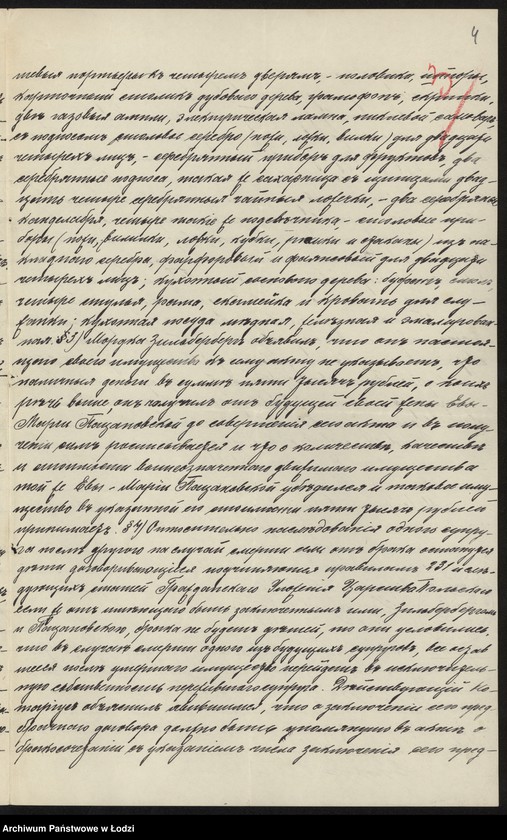 4
тевыя портьеры къ четыремъ дверямъ, - половики, шторы,
карточный столикъ дубоваго дерева, грамофонъ, скрипка,
двѣ газовыя лампы, электрическая лампа, никелевый самоваръ,
съ подносомъ столовое серебро (ножи, ложки, вилки) для двадцати
четырехъ лицъ, - серебрянный приборъ для фруктовъ, два
серебряные подноса, такая же сахарница съ щипцами двад-
цать четыре серебряныя чайныя ложечки, - два серебряные
канделябра, четыре такіе же подсвѣчника, - столовые при-
боры (ножи, вилки, ложки, кубки, рюмки и стаканы) изъ на-
кладного серебра, фарфоровый и фаянсовый для двадцати
четырехъ лицъ; кухонный сосноваго дерева: буфетъ, столъ,
четыре стулья, рама, скамейка и кровать для слу-
жанки; кухонная посуда мѣдная, желѣзная и эмалирован-
ная. §3) Мордка Зильбербергъ объявилъ, что онъ настоя-
щаго своего имущества къ сему акту не указываетъ, что
наличныя деньги въ суммѣ пяти тысячъ рублей, о коихъ
рѣчь выше, онъ получилъ отъ будущей своей жены Евы-
Маріи Познановской до совершенія сего акта и въ полу-
ченіи симъ расписывается и что о количествѣ, качествѣ
и стоимости вышеозначеннаго движимаго имущества
той же Евы - Маріи Познановской убѣдился и таковое иму-
щество въ указанной его стоимости пяти тысячъ рублей
принимаетъ. §4) Относительно наслѣдованія одного супру-
га послѣ другого на случай смерти если отъ брака останутся
дѣти договаривающіеся подчиняются правиламъ 231 и слѣ-
дующихъ статей Гражданскаго Уложенія Царства Польскаго
если же отъ имѣющаго быть заключеннымъ ими, Зильбербергомъ
и Познановскою, брака не будетъ дѣтей, то они условились,
что въ случаѣ смерти одного изъ будущихъ супруговъ, все остав-
шееся послѣ умершаго имущество перейдетъ въ исключитель-
ную собственность пережившаго супруга. Дѣйствующій но-
таріусъ объяснилъ явившимся, что о заключеніи сего пред-
брачнаго договора должно быть упомянуто въ актѣ о
бракосочетаніи съ указаніемъ числа заключенія сего пред-
Archiwum Państwowe w Łodzi